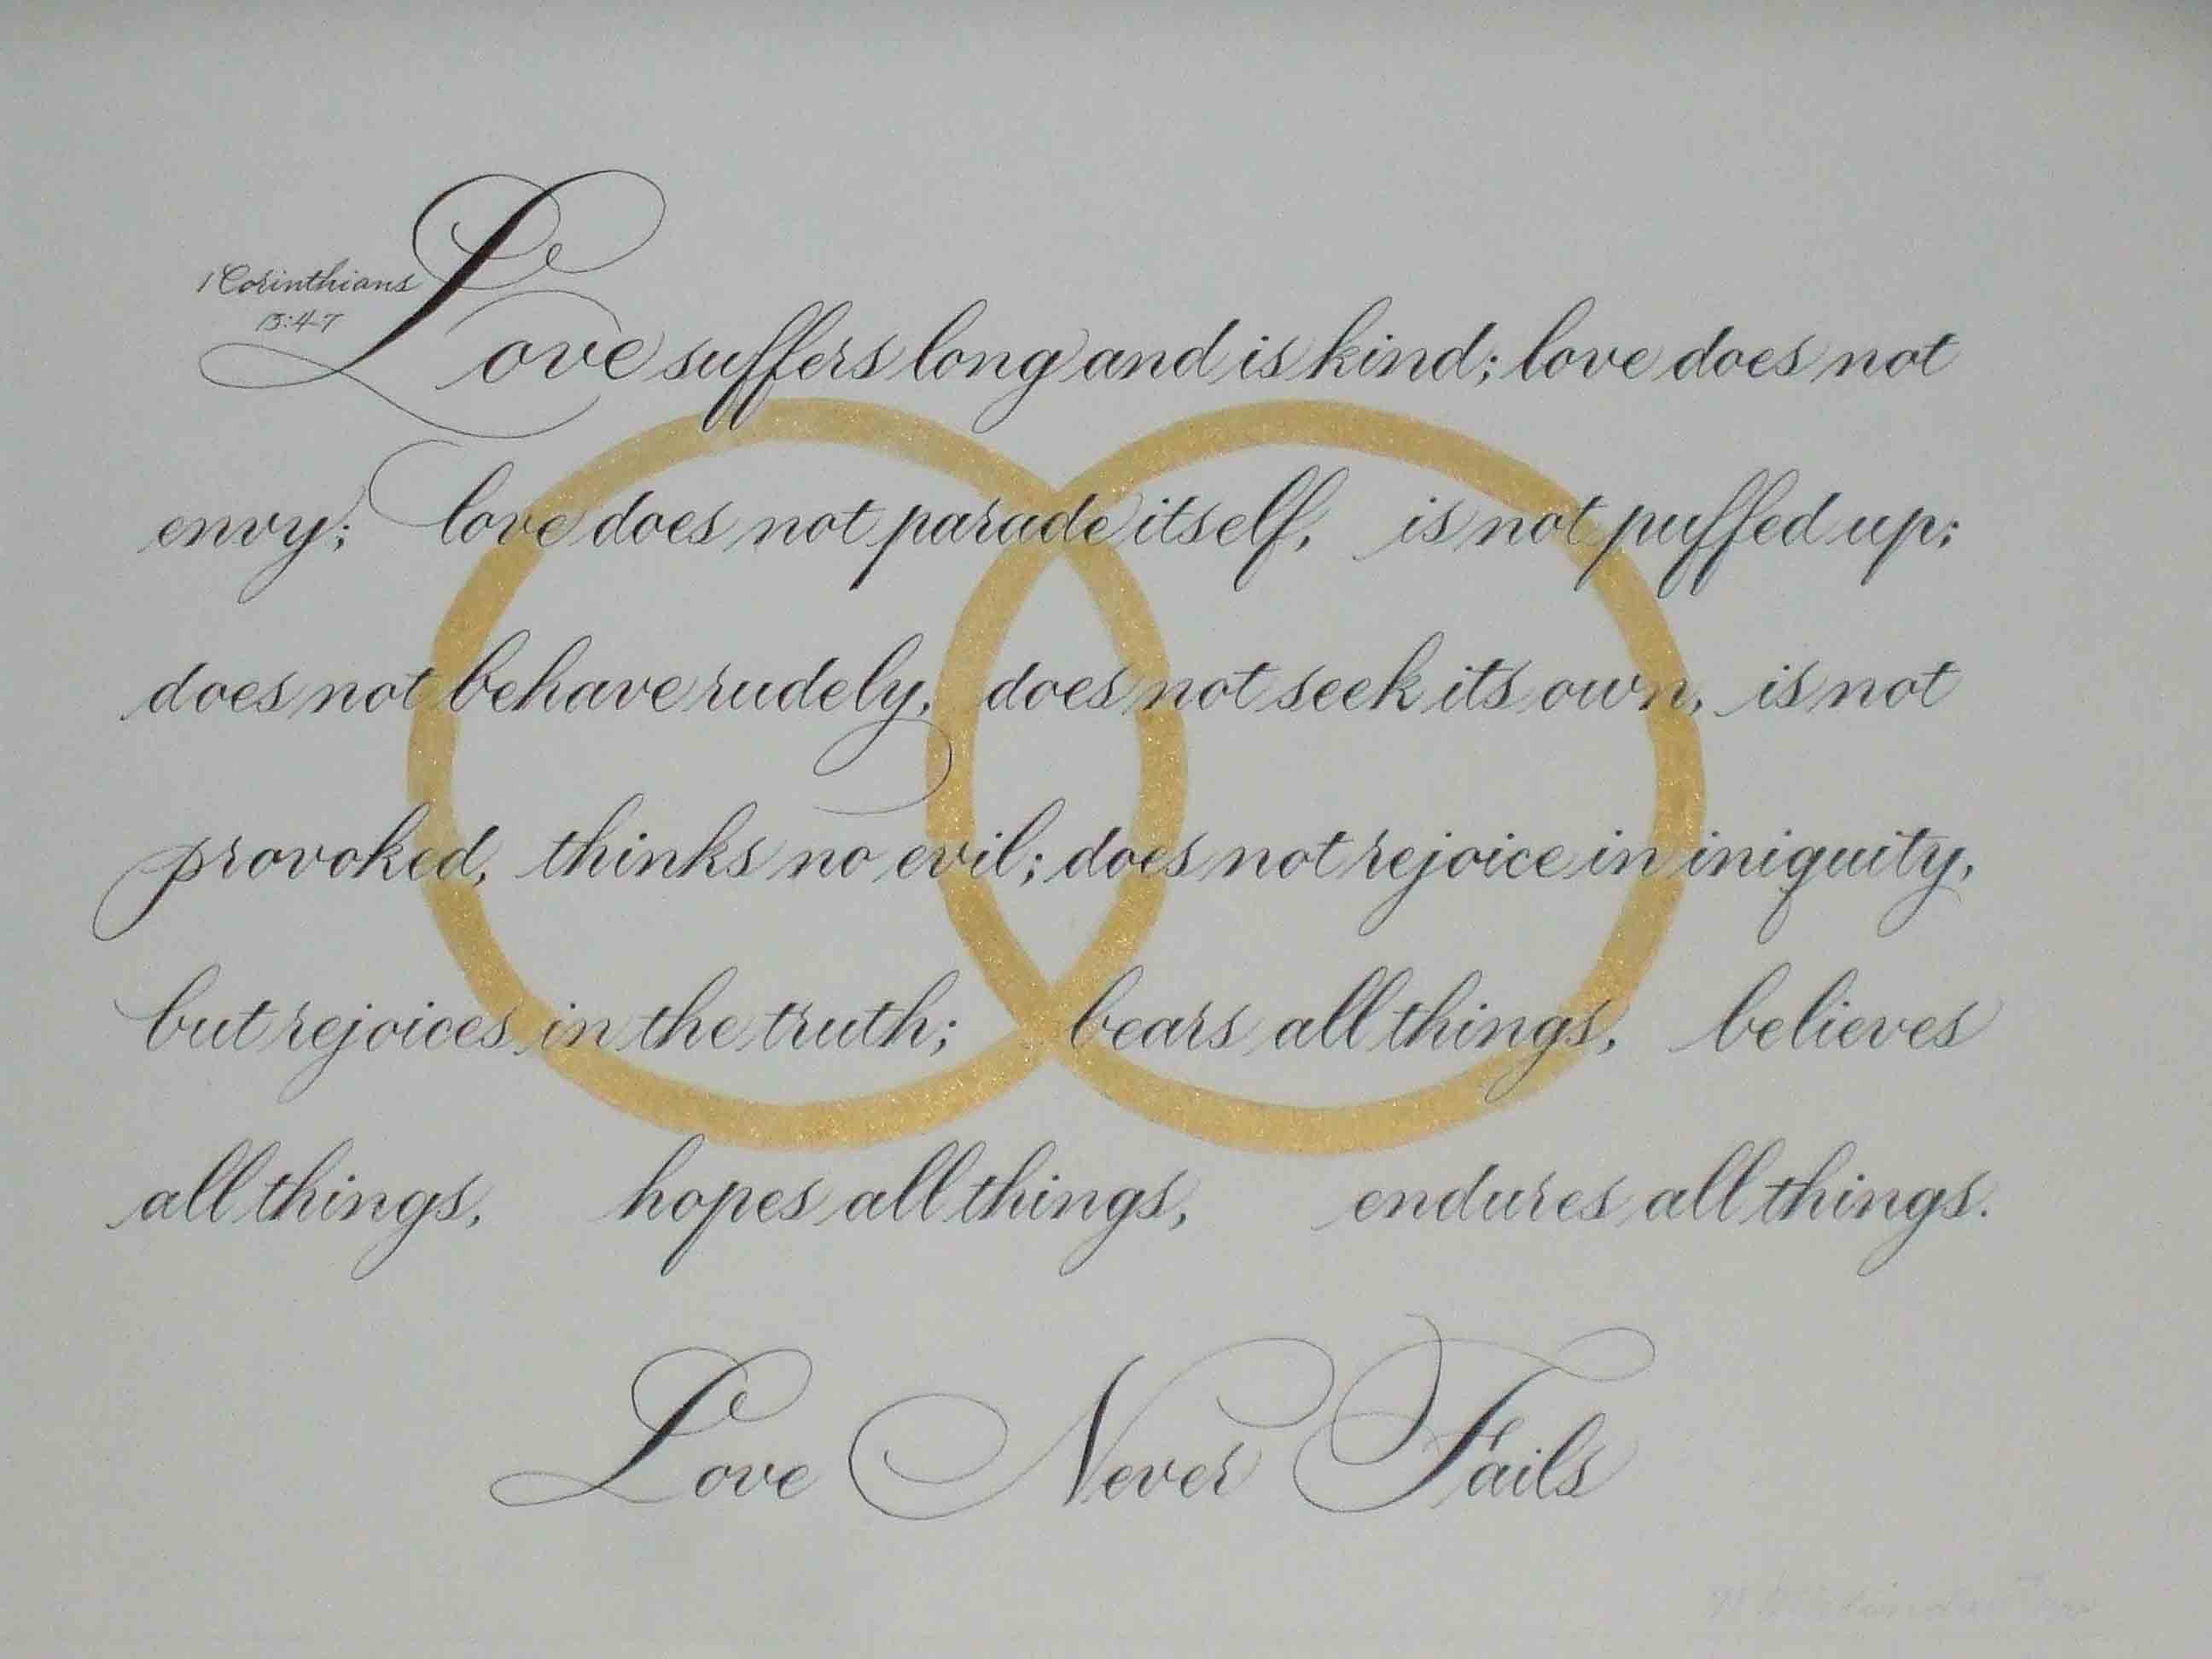 1 Corinthians
13:4-7
Love suffers long and is kind; love does not
envy; love does not parade itself, is not puffed up;
does not behave rudely, does not seek its own, is not
provoked, thinks no evil; does not rejoice in iniquity,
but rejoices in the truth; bears all things, believes
all things, hopes all things, endures all things.
Love Never Fails